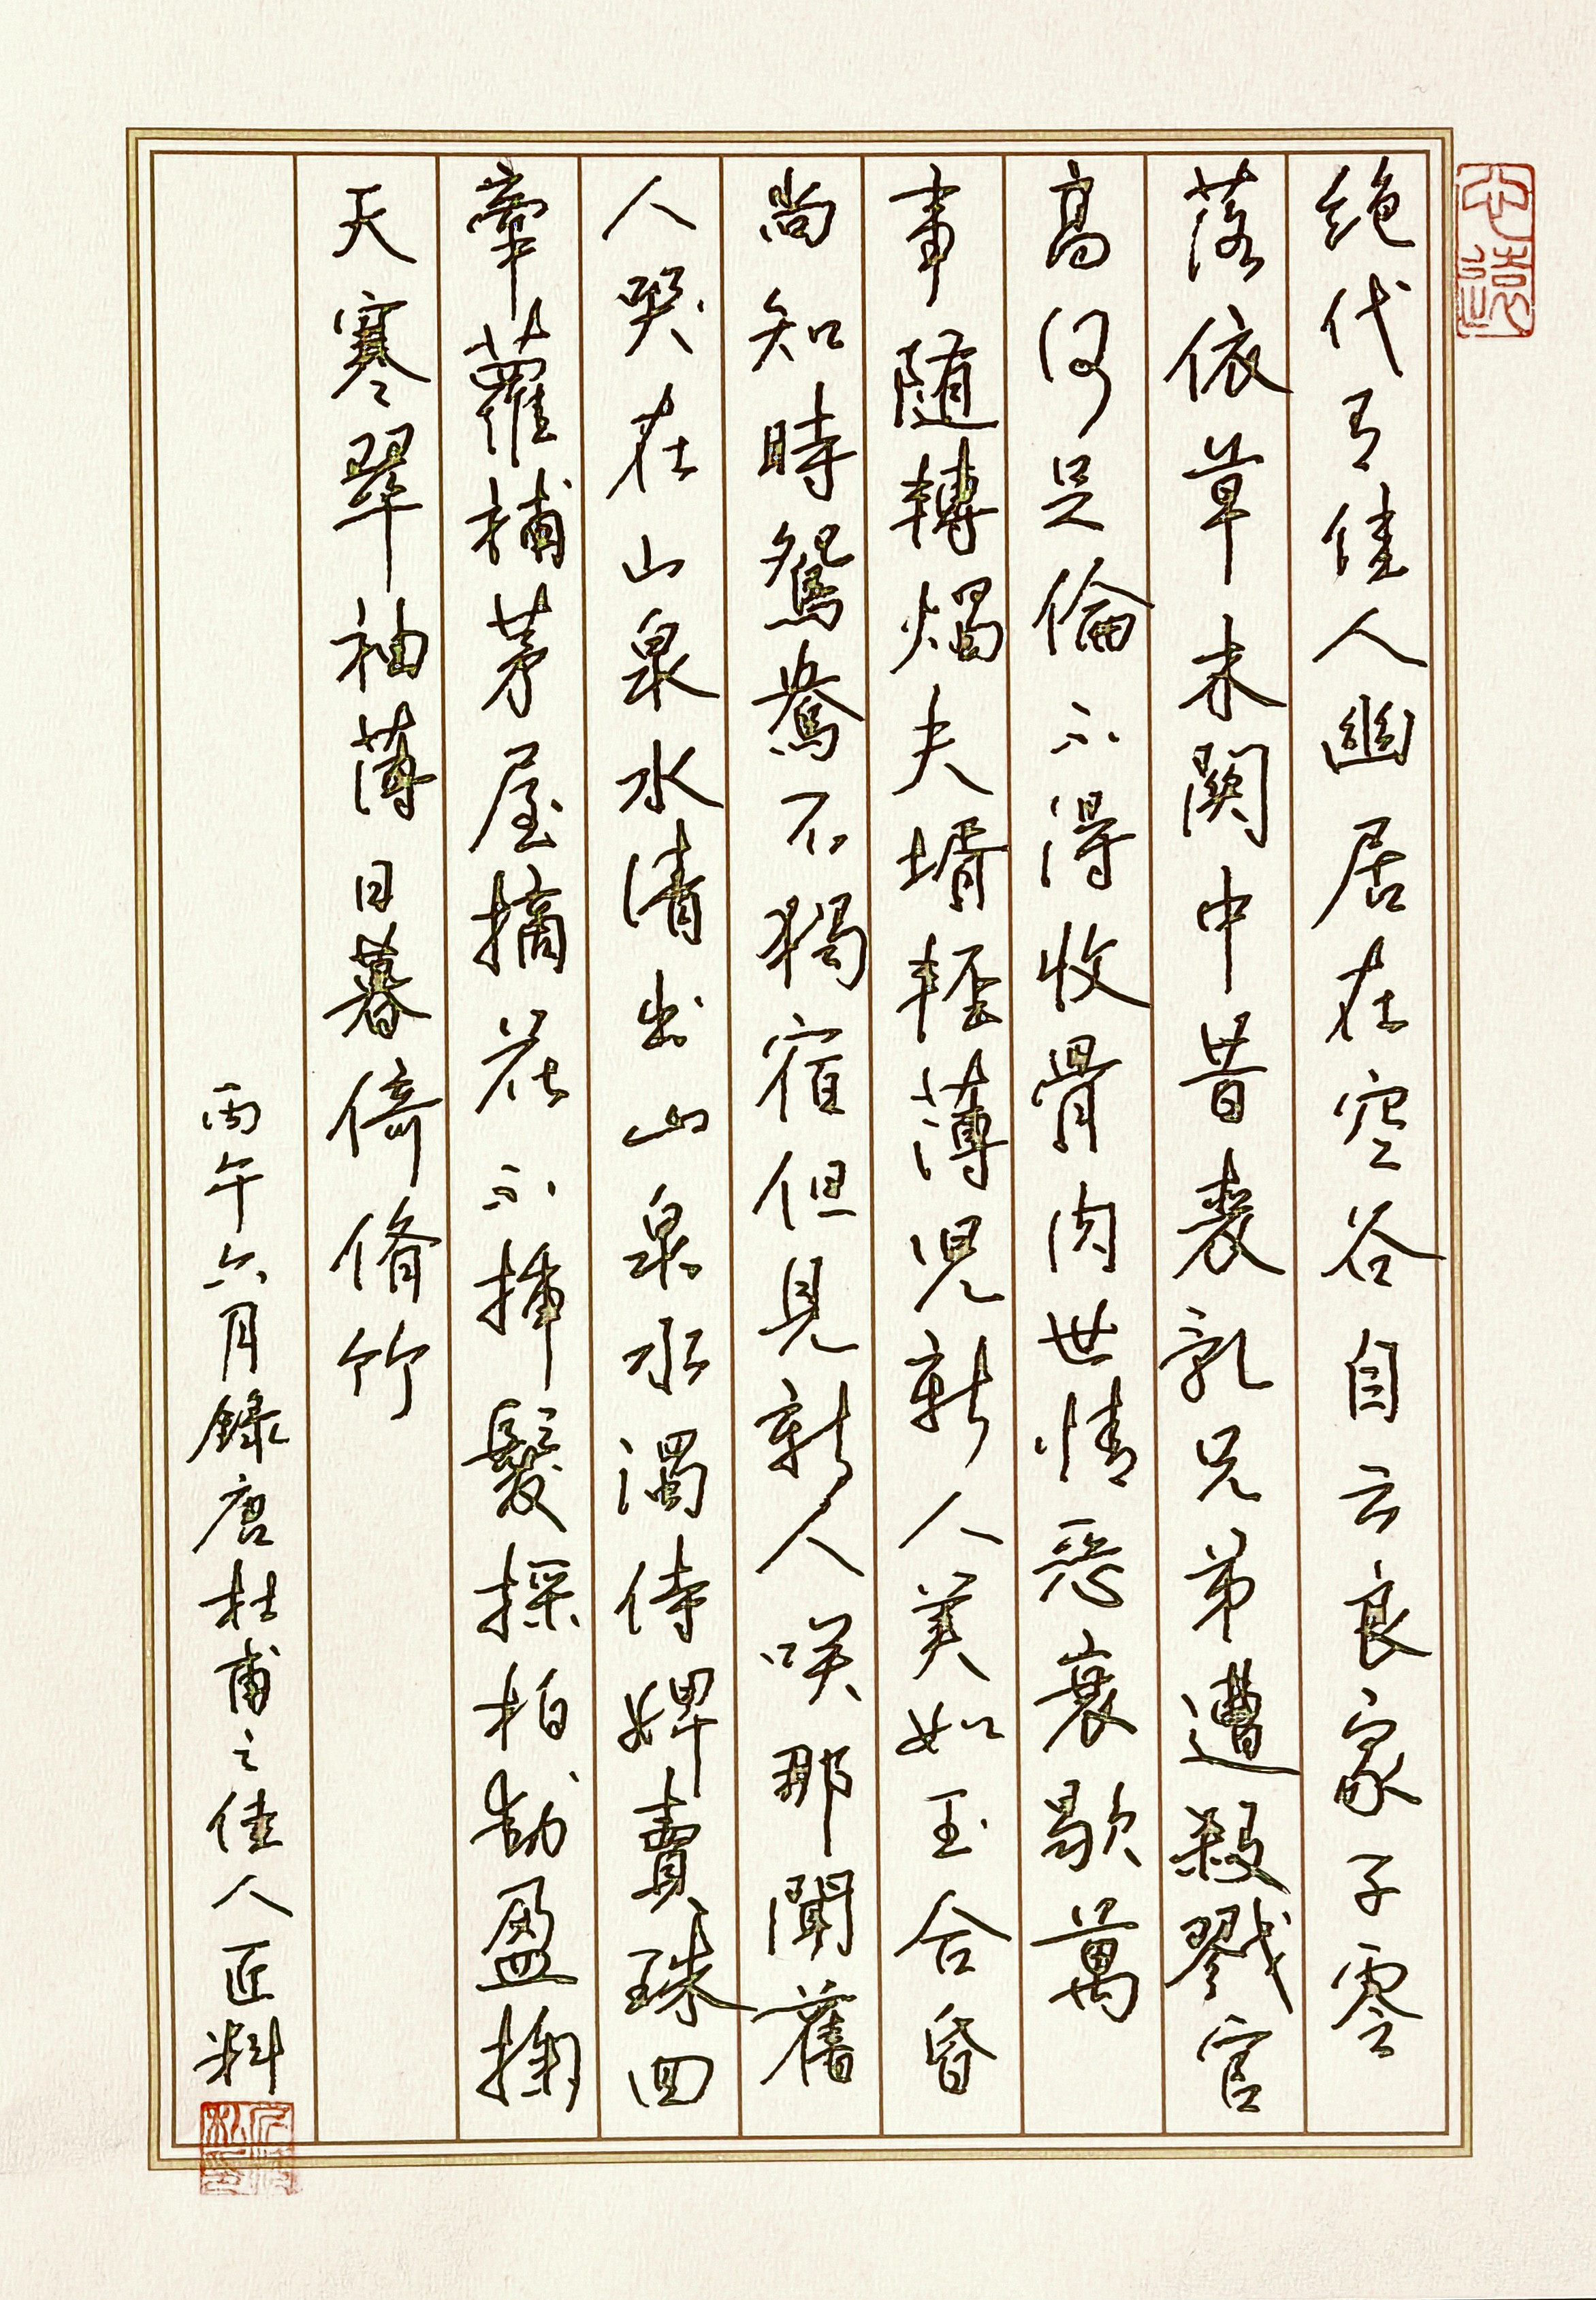 絕代有佳人幽居在空谷自云良家子零
落依草木関中昔喪亂兄弟遭殺戮官
高何足倫不得收骨肉世情惡衰歇萬
事随轉燭夫壻輕薄児新人美如玉合昏
尚知時鴛鴦不獨宿但見新人咲那聞舊
人哭在山泉水清出山泉水濁侍婢賣珠回
牽蘿補茅屋摘花不插髮採柏動盈掬
天寒翠袖薄日暮倚脩竹
丙午六月錄唐杜甫之佳人匠料